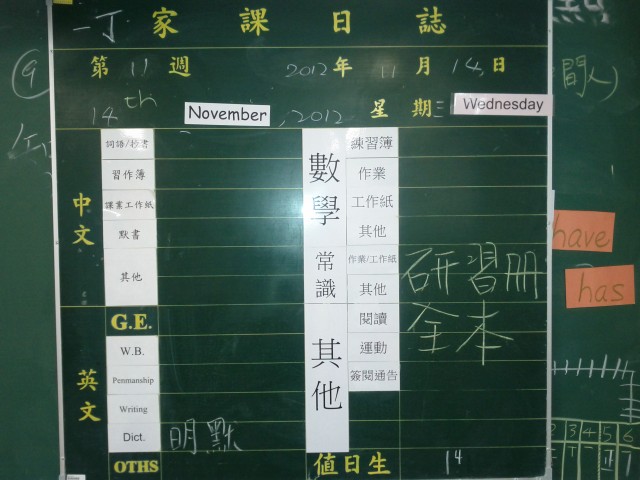 一丁 家課日誌
第 11 週 2012 年 11 月 14 日
14th November, 2012 星期三 Wednesday
中文
詞語/抄書
習作簿
課業工作紙
默書
其他
英文
G.E.
W.B.
Penmanship
Writing
Dict. 明默
OTHS
數學
練習簿
作業
工作紙
其他
常識
作業/工作紙 研習册
其他
其他
閱讀 全本
運動
簽閱通告
值日生 14
9
間人)
have
has
2 3 4 5 6